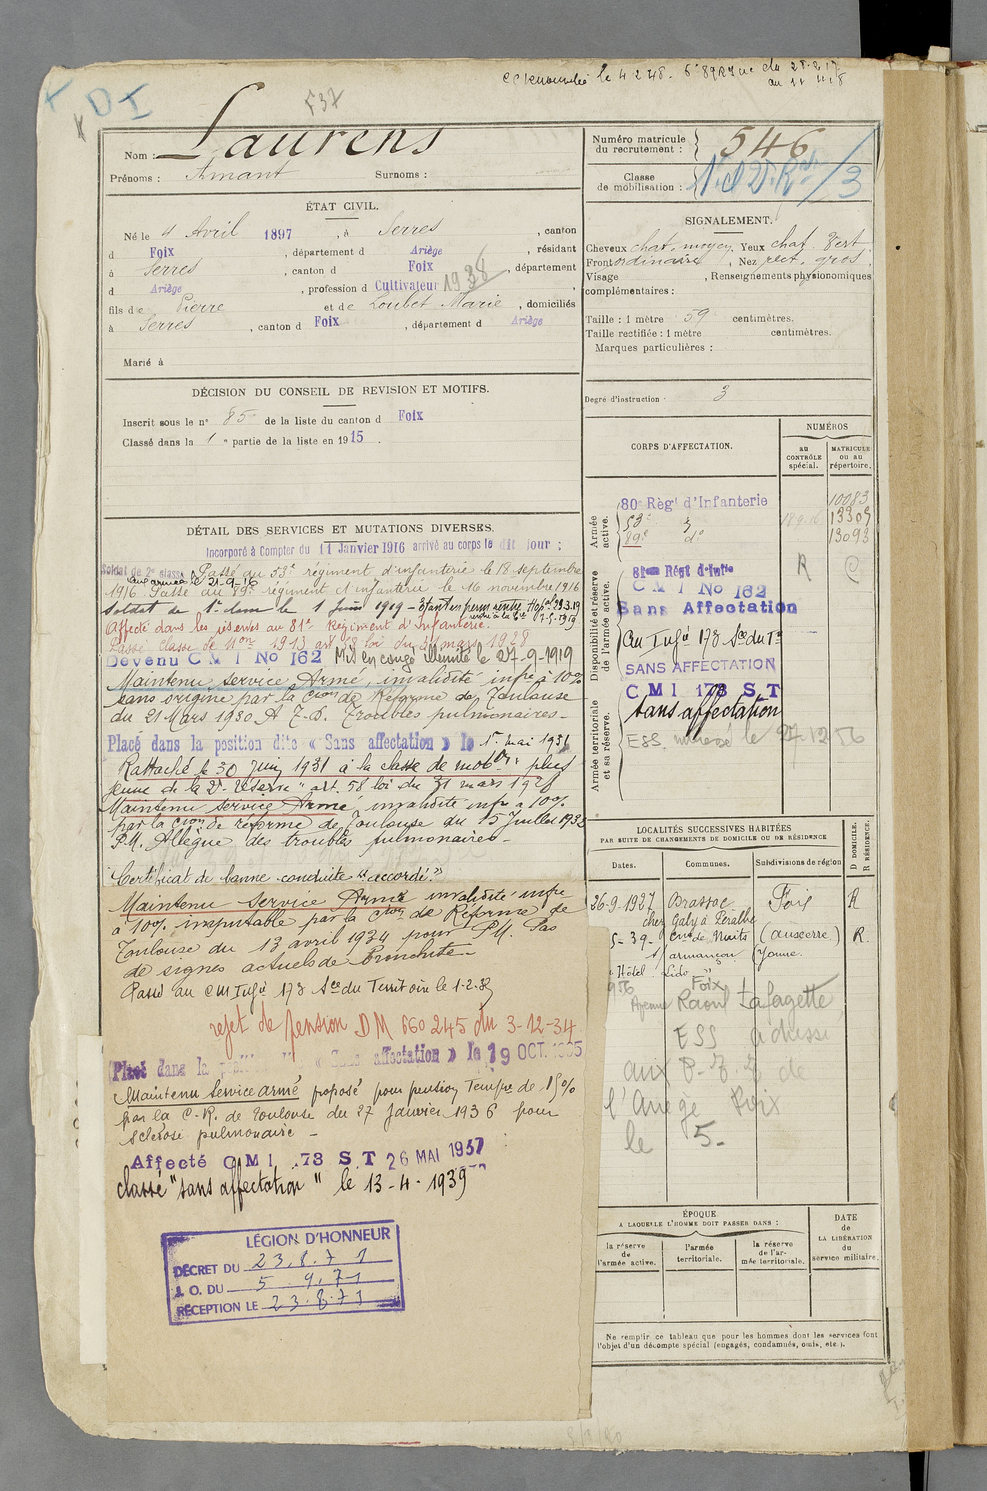 le 4 2 48.
DI
Nom : Laurens
Prénoms : Amant Surnoms :
Numéro matricule du recrutement : 546
Classe de mobilisation :
ÉTAT CIVIL.
Né le 4 Avril 1897, à Serres, canton
d Foix, département d Ariège, résidant
à Serres, canton d Foix, département
d Ariège, profession d Cultivateur 1938
fils de Pierre et de Loubet Marie, domiciliés
à Serres, canton d Foix, département d Ariège
Marié à
SIGNALEMENT.
Cheveux chat. moyen Yeux chat. vert.
Front ordinaire, Nez rect. gros.
Visage , Renseignements physionomiques
complémentaires :
Taille : 1 mètre 59 centimètres.
Taille rectifiée : 1 mètre centimètres.
Marques particulières :
Degré d'instruction : 3
DÉCISION DU CONSEIL DE REVISION ET MOTIFS.
Inscrit sous le n° 85 de la liste du canton d Foix
Classé dans la 1e partie de la liste en 1915.
DÉTAIL DES SERVICES ET MUTATIONS DIVERSES.
Incorporé à Compter du 11 Janvier 1916 arrivé au corps le dit jour ;
Soldat de 2e classe Passé au 53e régiment d'infanterie le 18 septembre
aux armées le 21-9-16
1916. Passé au 89e régiment d'infanterie le 16 novembre 1916
Soldat de 1e classe le 1 Juin 1919
Affecté dans les réserves au 81e Régiment d'Infanterie.
Passé classe de mon 1913 art 58 loi du 31 mars 1928
Devenu C M I No 162 Mis en congé illimité le 27-9-1919
Maintenu service Armé, invalidité infre à 10%
sans origine par la Cion de Réforme de Toulouse
du 21 Mars 1930. Troubles pulmonaires.
Placé dans la position dite « Sans affectation » le 1er mai 1931
Rattaché le 30 Juin 1931 à la classe de mobon la plus
jeune de la 2e réserve" art. 58 loi du 31 mars 1928
Maintenu Service Armé, invalidité infre à 10%
par la Cion de réforme de Toulouse du 15 Juillet 1932
P.M. Allègue des troubles pulmonaires.
Certificat de bonne conduite "accordé."
Maintenu Service Armé invalidité infre
à 10% imputable par la Cion de Réforme de
Toulouse du 13 avril 1934 pour P.M. Pas
de signes actuels de Bronchite.
Passé au CM Infie 173 Son du Territoire le 1-2-
rejet de pension DM 660245 du 3-12-34
Placé dans la position dite « Sans affectation » le 19 OCT. 1935
Maintenu Service armé proposé pour pension Tempre de 15%
par la C.R. de Toulouse du 27 Janvier 1936 pour
sclérose pulmonaire
Affecté C M I 173 S.T 26 MAI 1937
classé "sans affectation" le 13-4-1939
LÉGION D'HONNEUR
DÉCRET DU 23.8.71
J. O. DU 5.9.71
RÉCEPTION LE 23.8.71
CORPS D'AFFECTATION.
NUMÉROS
au CONTRÔLE spécial.
MATRICULE ou au répertoire.
Armée active.
80e Régt d'Infanterie 10083
53e d° 13309
89e d° 13093
Disponibilité et réserve de l'armée active.
81me Régt d'Infie
C M I No 162
Sans Affectation
CM Infie 173 Son du Tre
SANS AFFECTATION
C M I 173 S.T
Sans affectation
Armée territoriale et sa réserve.
ESS le 27.12.56
LOCALITÉS SUCCESSIVES HABITÉES
PAR SUITE DE CHANGEMENTS DE DOMICILE OU DE RÉSIDENCE
Dates. Communes. Subdivisions de région
D DOMICILE.
R RÉSIDENCE.
26-9-1927 Brassac Foix R
chez Galy à Peralbe
5-39- Cne de Nuits (Auxerre.) R.
s/ armançon Yonne.
Hôtel Lido" Foix
Avenue Raoul Lafagette
ESS adresse
aux P.T.T de
l'Ariège Foix
le 5-
ÉPOQUE
A LAQUELLE L'HOMME DOIT PASSER DANS :
la réserve de l'armée active.
l'armée territoriale.
la réserve de l'armée territoriale.
DATE
de
LA LIBÉRATION
du
service militaire.
Ne remplir ce tableau que pour les hommes dont les services font
l'objet d'un décompte spécial (engagés, condamnés, omis, etc.).